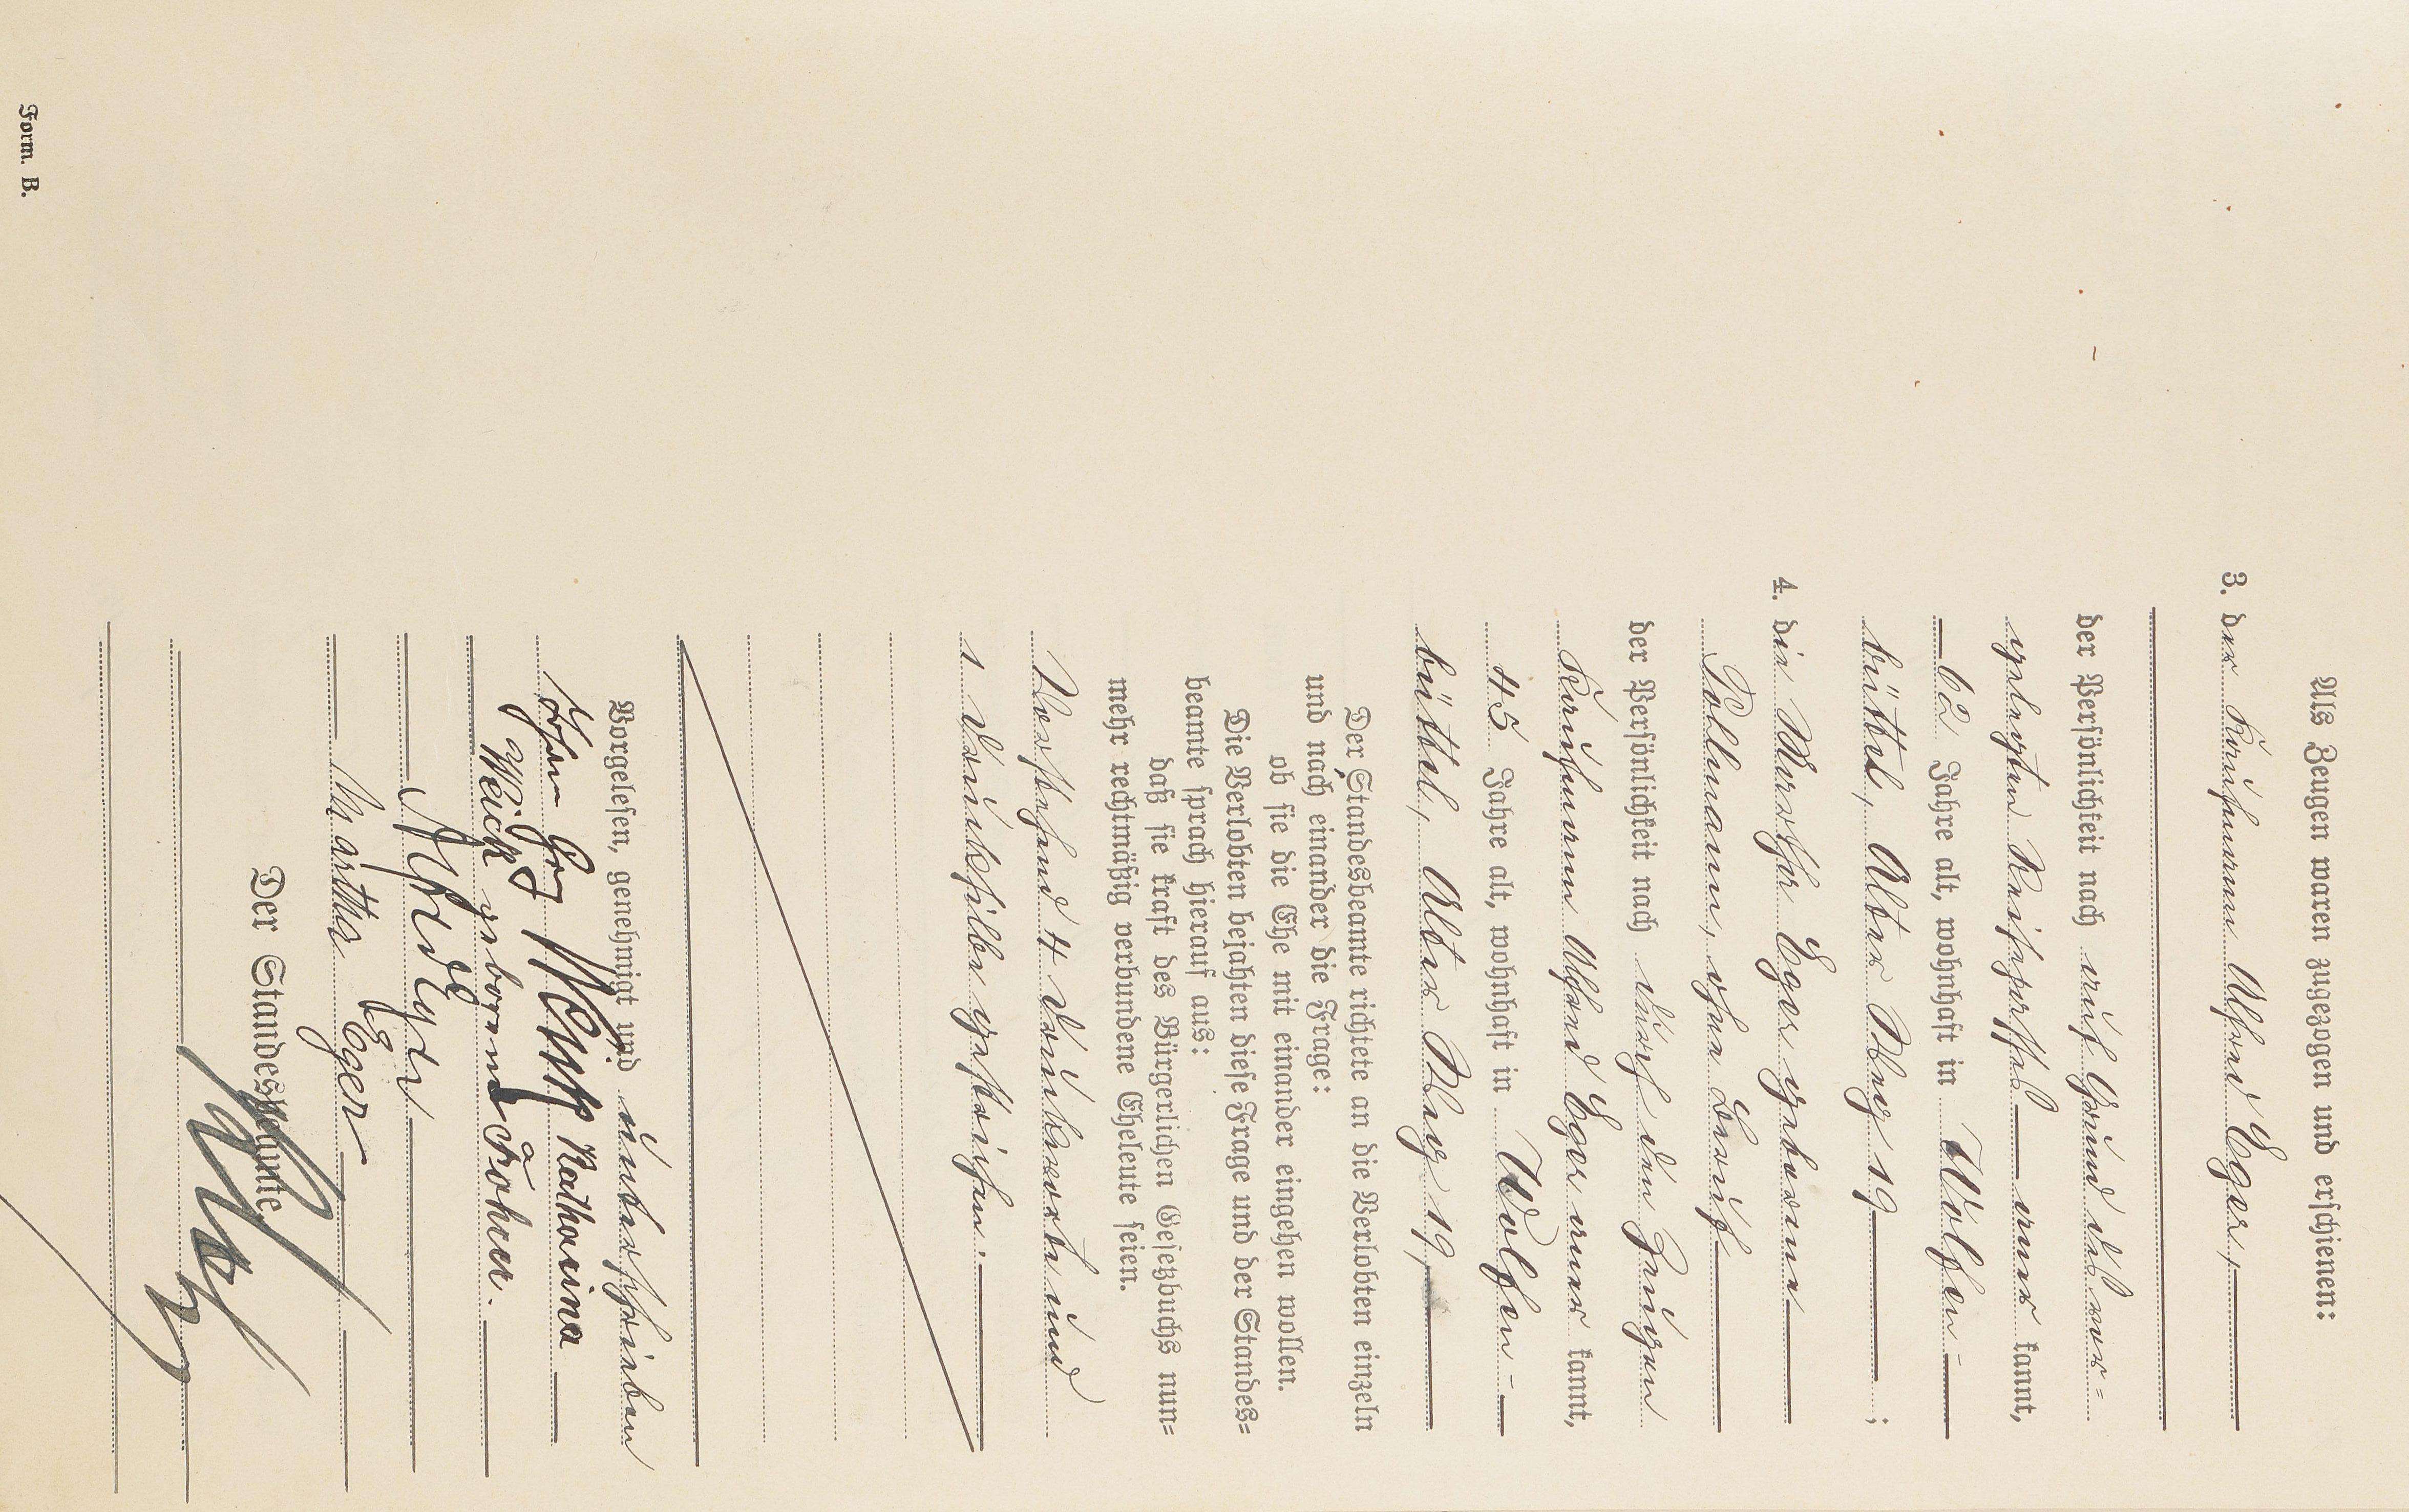 Als Zeugen waren zugezogen und erschienen:
3. der Kaufmann Alfred Eger,
der Persönlichkeit nach auf Grund des vor-
gelegten Reisepasses aner kannt,
62 Jahre alt, wohnhaft in Wolfen-
büttel, Alter Weg 19 ;
4. die Martha Eger geborene
Pollmann, ohne Beruf
der Persönlichkeit nach durch den Zeugen
Kaufmann Alfred Eger aner kannt,
45 Jahre alt, wohnhaft in Wolfen-
büttel, Alter Weg 19,
Der Standesbeamte richtete an die Verlobten einzeln
und nach einander die Frage:
ob sie die Ehe mit einander eingehen wollen.
Die Verlobten bejahten diese Frage und der Standes-
beamte sprach hierauf aus:
daß sie kraft des Bürgerlichen Gesetzbuchs nun-
mehr rechtmäßig verbundene Eheleute seien.
Vorstehend 4 Druckworte und
1 Drucksilbe gestrichen.
Vorgelesen, genehmigt und unterschrieben
Katharina
geborene
Martha Eger
Der Standesbeamte.
Form. B.